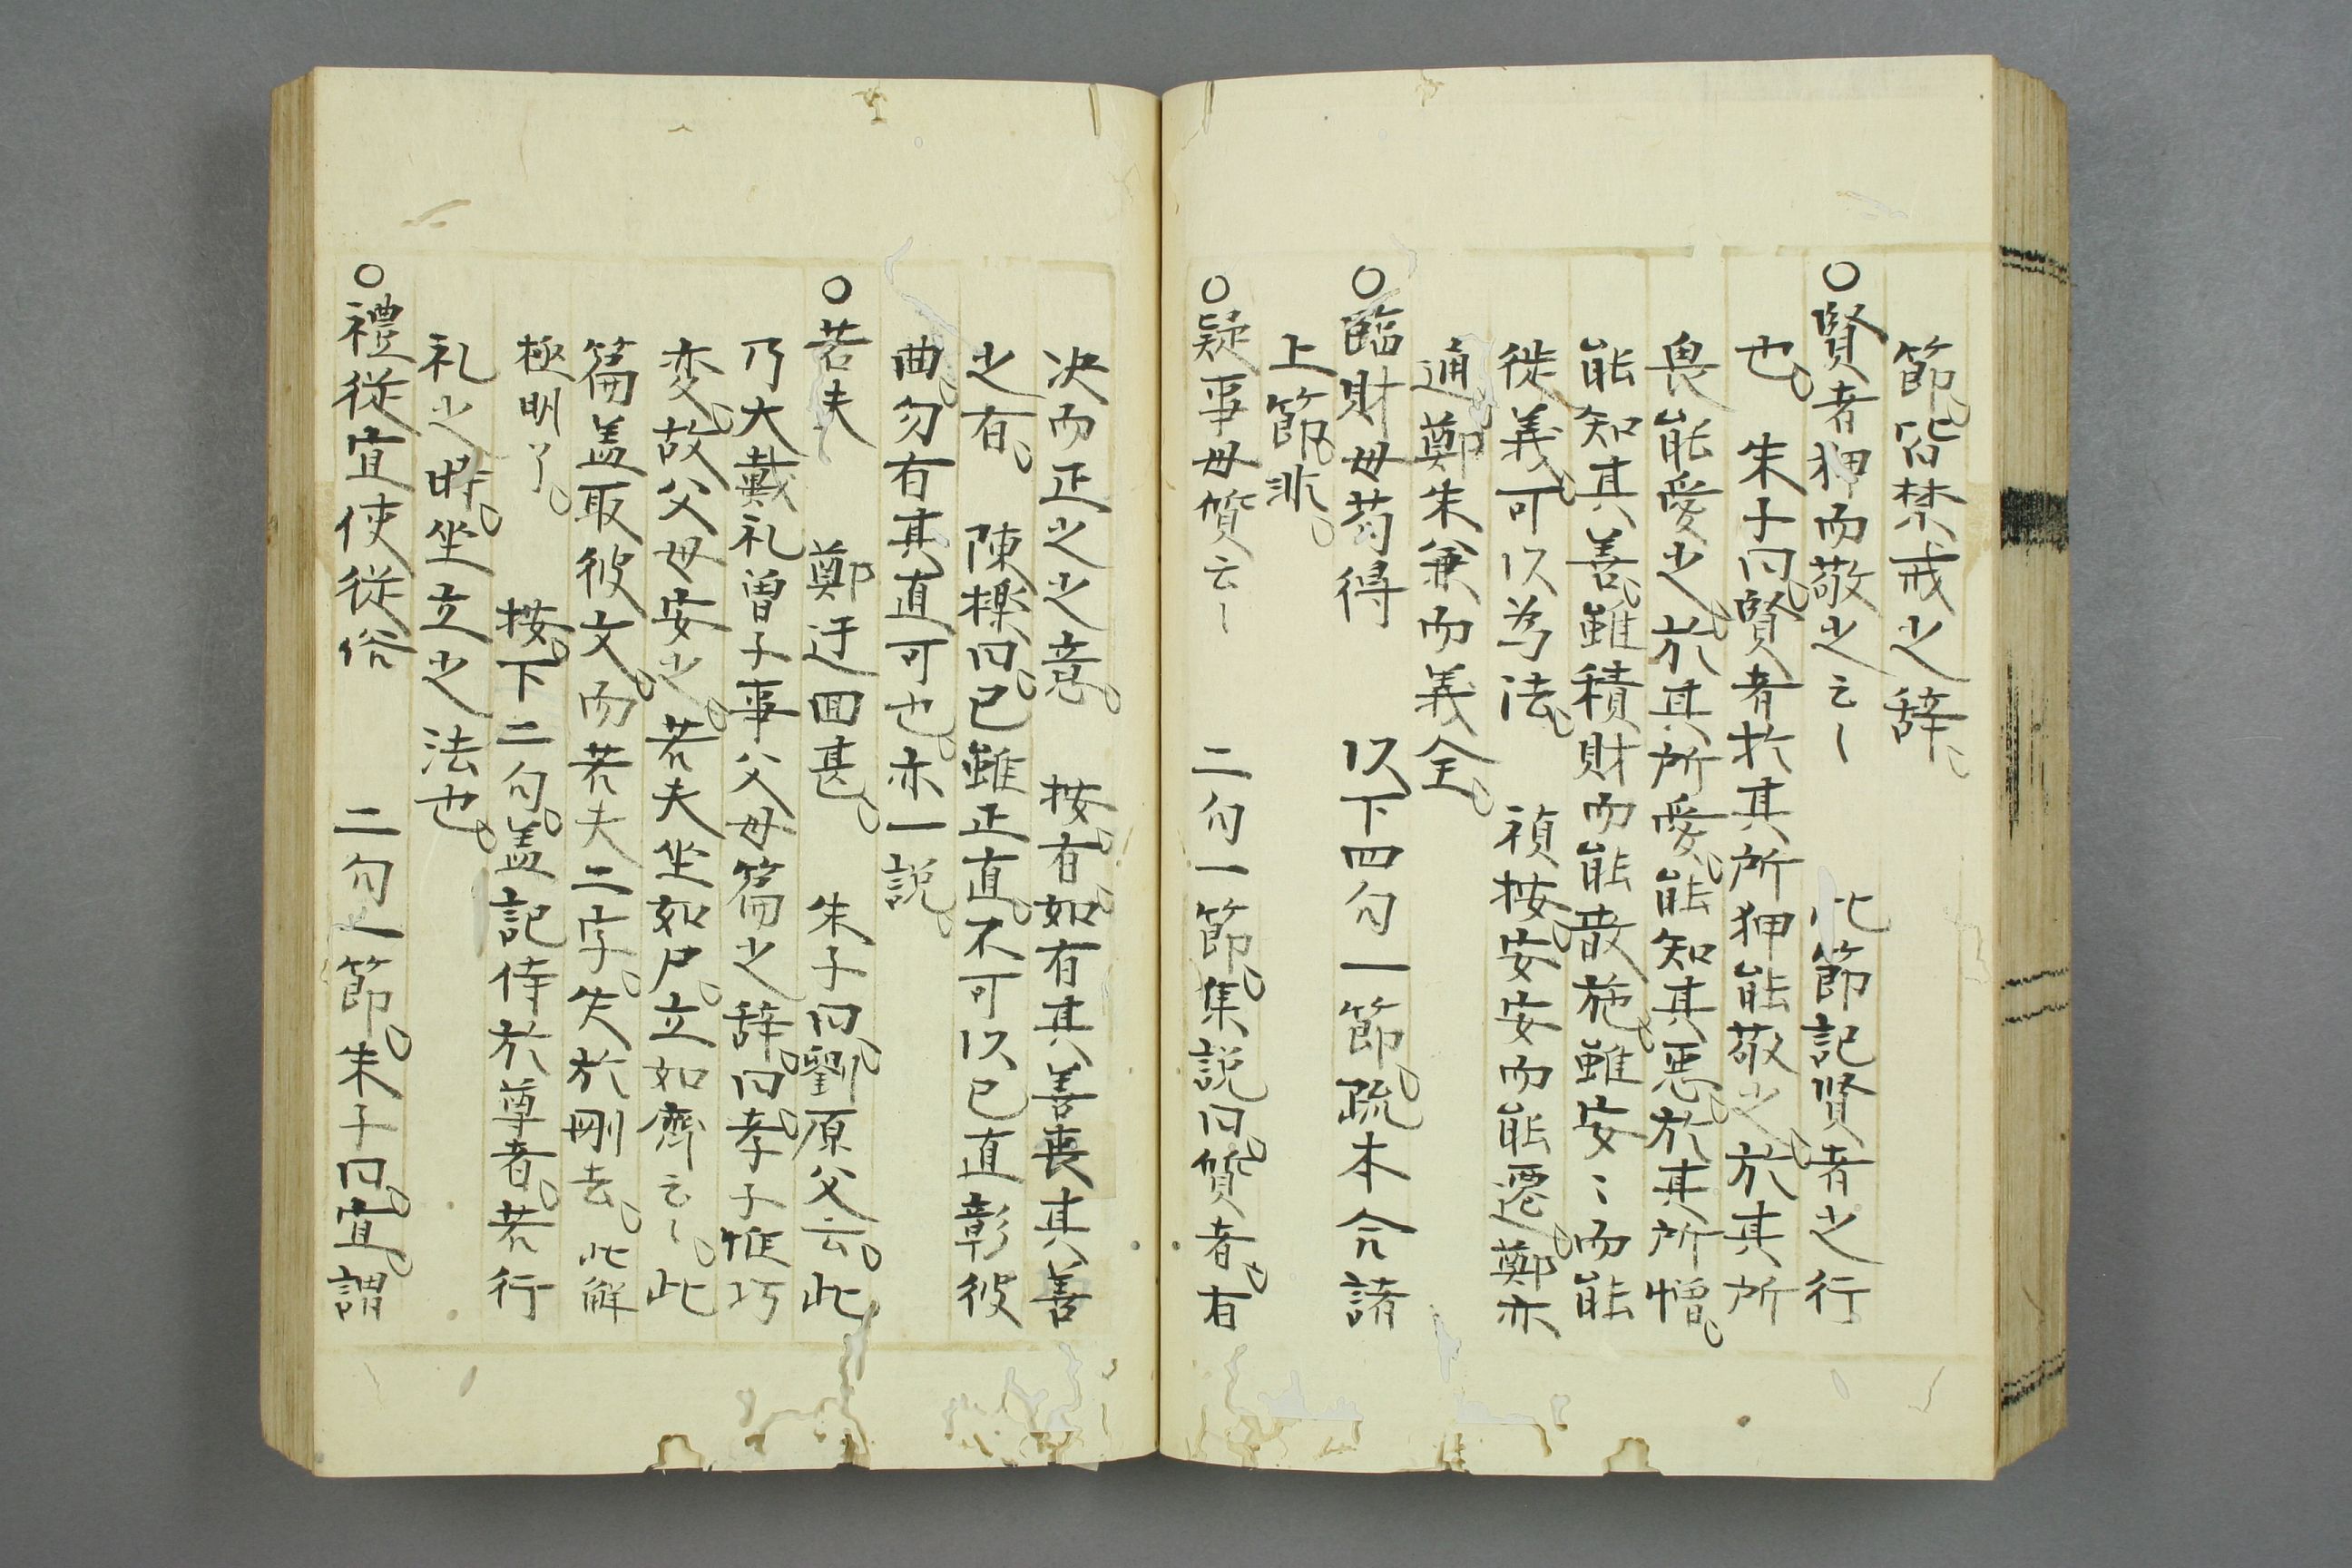 節。皆禁戒之辞。
○賢者狎而敬之云〻 此節記賢者之行
也。 朱子曰。賢者於其所狎能敬之。於其所
畏能愛之。於其所愛。能知其悪。於其所憎。
能知其善。雖積財而能散施。雖安〻而能
徙義。可以為法。 禎按。安安而能遷。鄭亦
通。鄭朱兼而義全。
○臨財毋苟得 以下四句一節。疏本合諸
上節。非。
○疑事毋質云〻 二句一節。集説曰。質者。有
决而正之之意。 按。有。如有其善喪其善
之有。 陳櫟曰。已雖正直。不可以已直彰彼
曲。勿有其直可也。亦一説。
○若夫 鄭迂回甚。 朱子曰。劉原父云。此
乃大戴礼曽子事父母篇之辞。曰。孝子惟巧
変。故父母安之。若夫坐如尸。立如齊云〻。此
篇盖取彼文。而若夫二字。失於刪去。此解
極明了。 按。下二句。盖記侍於尊者。若行
礼之時。坐立之法也。
○禮從宜使從俗 二句一節。朱子曰。宜。謂